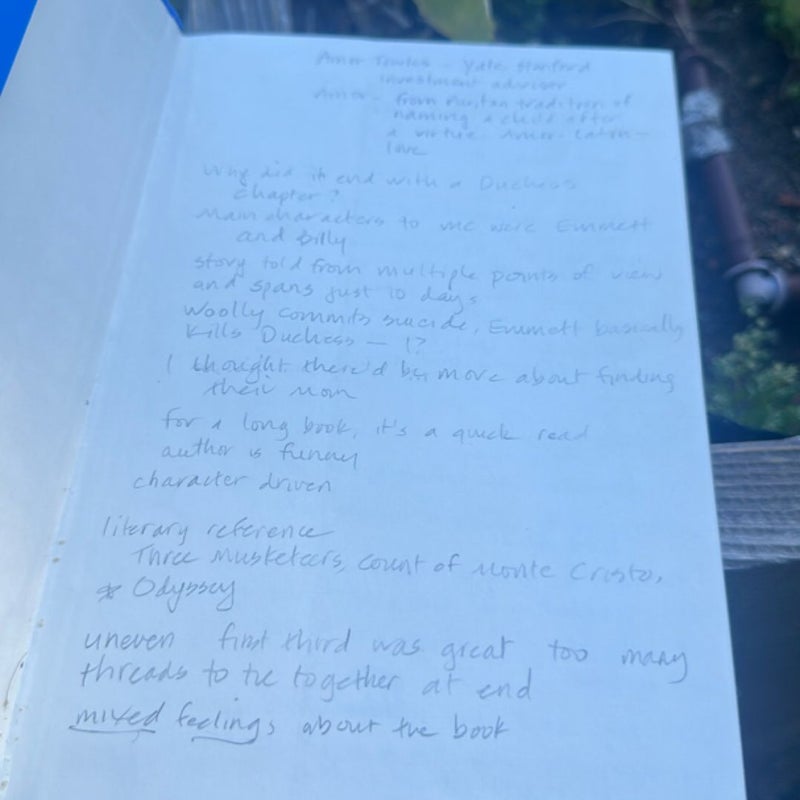 Amor Towles - Yale Stanford
investment adviser
Amor - from Puritan tradition of
naming a child after
a virtue. Amor - Latin -
love
Why did it end with a Duchess
chapter?
Main characters to me were Emmett
and Billy
story told from multiple points of view
and spans just 10 days
Woolly commits suicide, Emmett basically
kills Duchess — !?
I thought there'd be more about finding
their mom
for a long book, it's a quick read
author is funny
character driven
literary reference
Three Musketeers, Count of Monte Cristo,
* Odyssey
uneven first third was great too many
threads to tie together at end
mixed feelings about the book